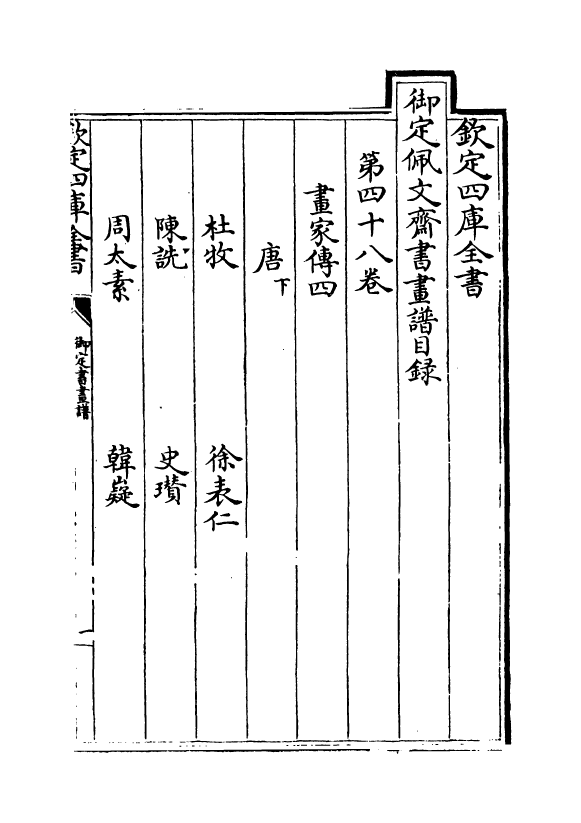 欽定四庫全書
御定佩文齋書畫譜目録
第四十八卷
畫家傳四
唐下
杜牧　徐表仁
陳詵　史瓚
周太素　韓嶷
欽定四庫全書
御定書畫譜
一